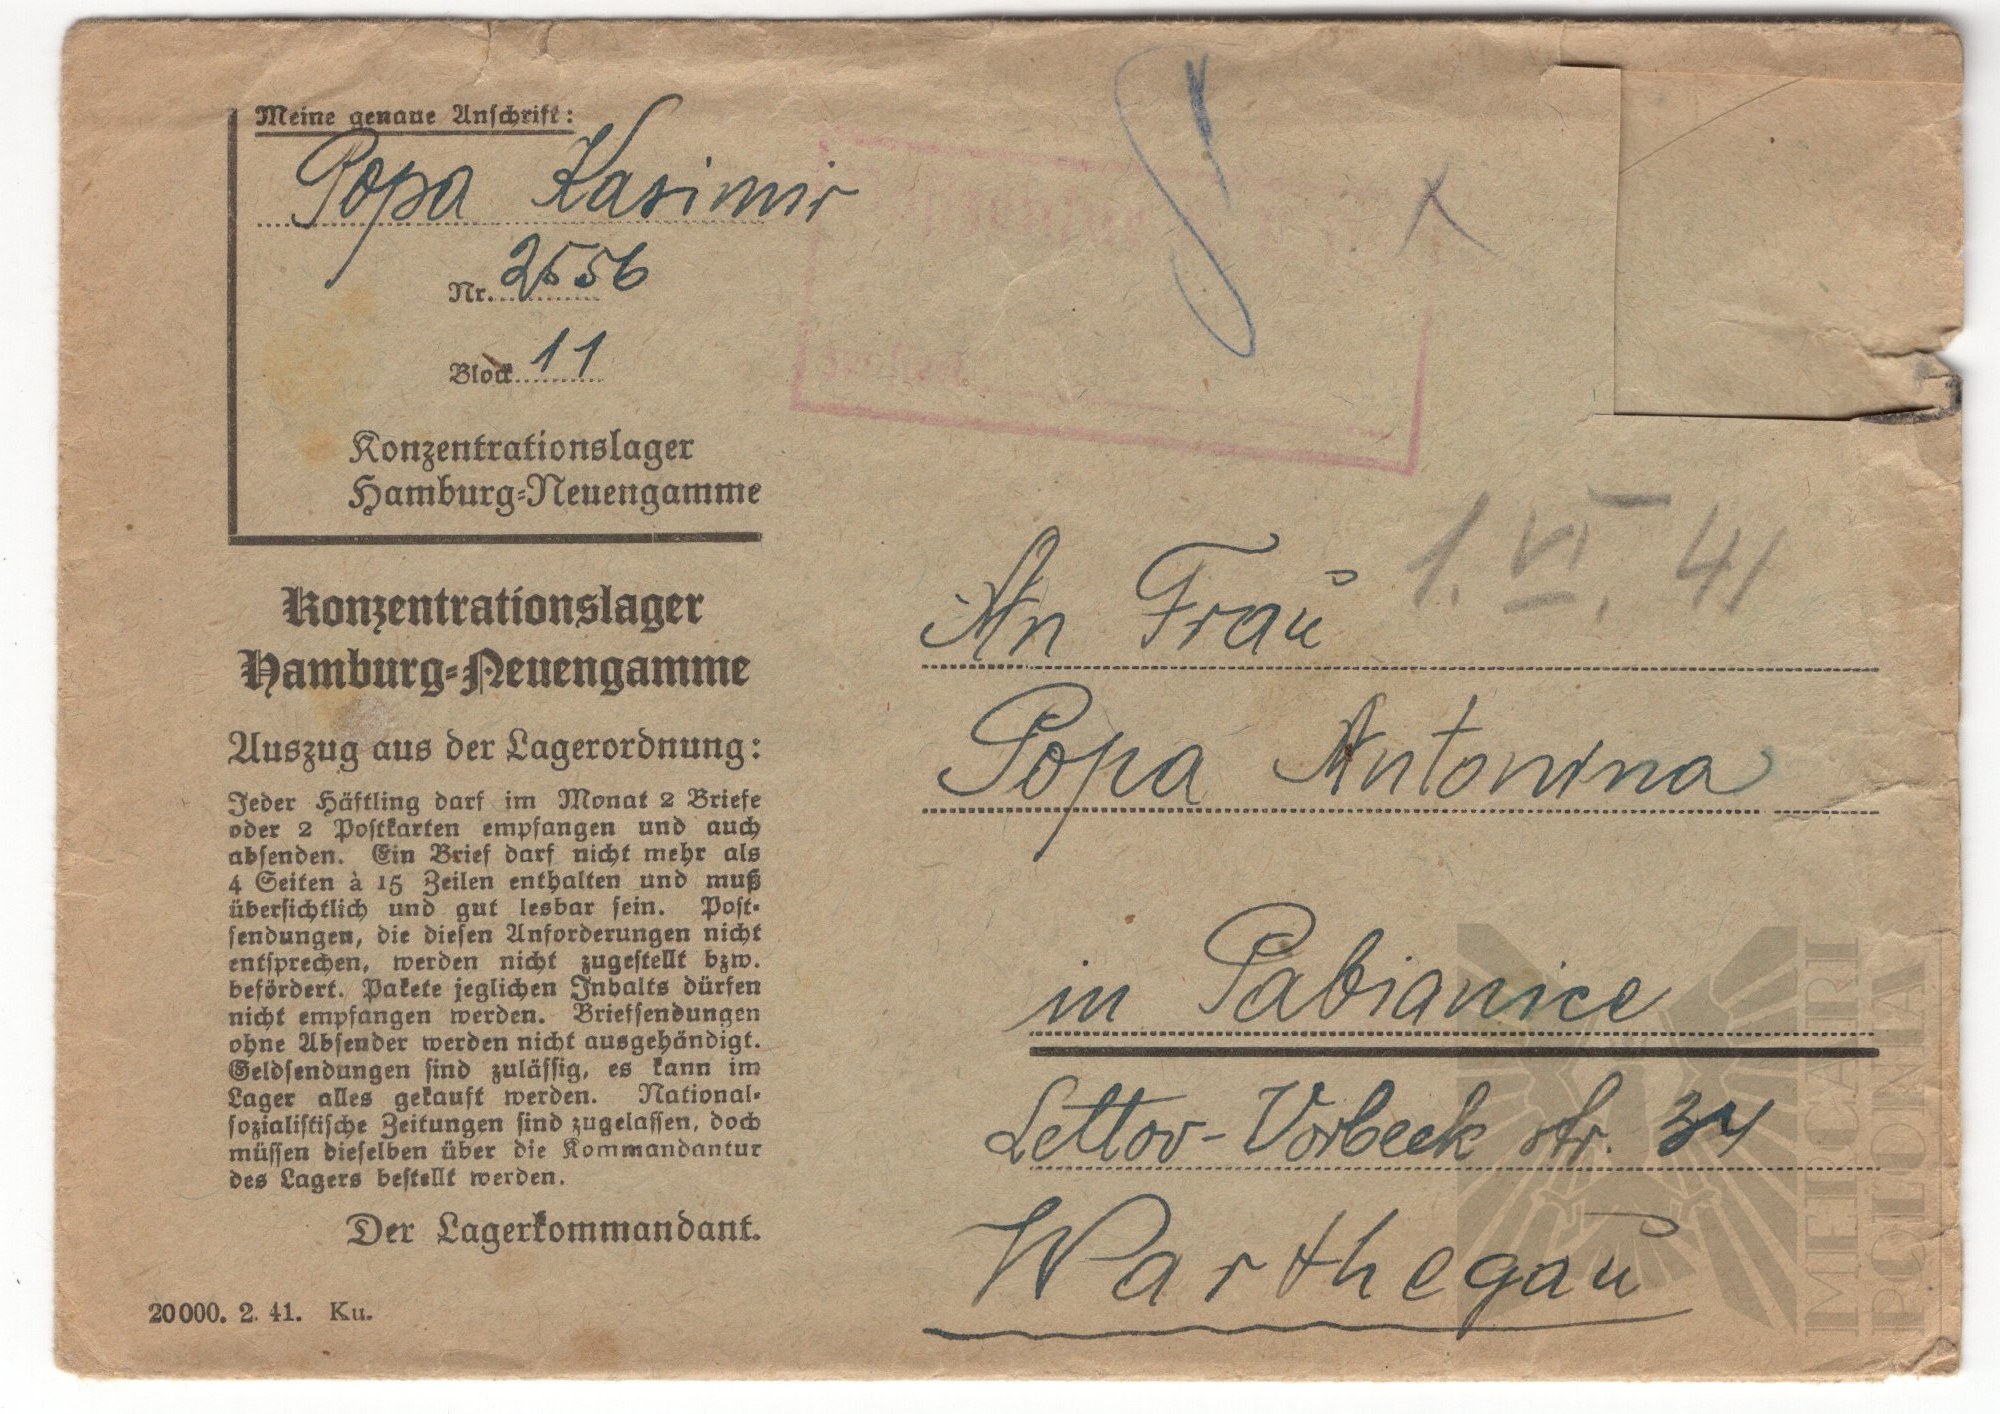 Meine genaue Anschrift:
Popa Kasimir
Nr. 2556
Block 11
Konzentrationslager
Hamburg-Neuengamme
Konzentrationslager
Hamburg-Neuengamme
Auszug aus der Lagerordnung:
Jeder Häftling darf im Monat 2 Briefe
oder 2 Postkarten empfangen und auch
absenden. Ein Brief darf nicht mehr als
4 Seiten à 15 Zeilen enthalten und muß
übersichtlich und gut lesbar sein. Post-
sendungen, die diesen Anforderungen nicht
entsprechen, werden nicht zugestellt bzw.
befördert. Pakete jeglichen Inhalts dürfen
nicht empfangen werden. Briefsendungen
ohne Absender werden nicht ausgehändigt.
Geldsendungen sind zulässig, es kann im
Lager alles gekauft werden. National-
sozialistische Zeitungen sind zugelassen, doch
müssen dieselben über die Kommandantur
des Lagers bestellt werden.
Der Lagerkommandant.
20000. 2. 41. Ku.
1. VI. 41
An Frau
Popa Antonina
in Pabianice
Lettov-Vorbeck str. 34
Warthegau
MEICARI
POLONIA